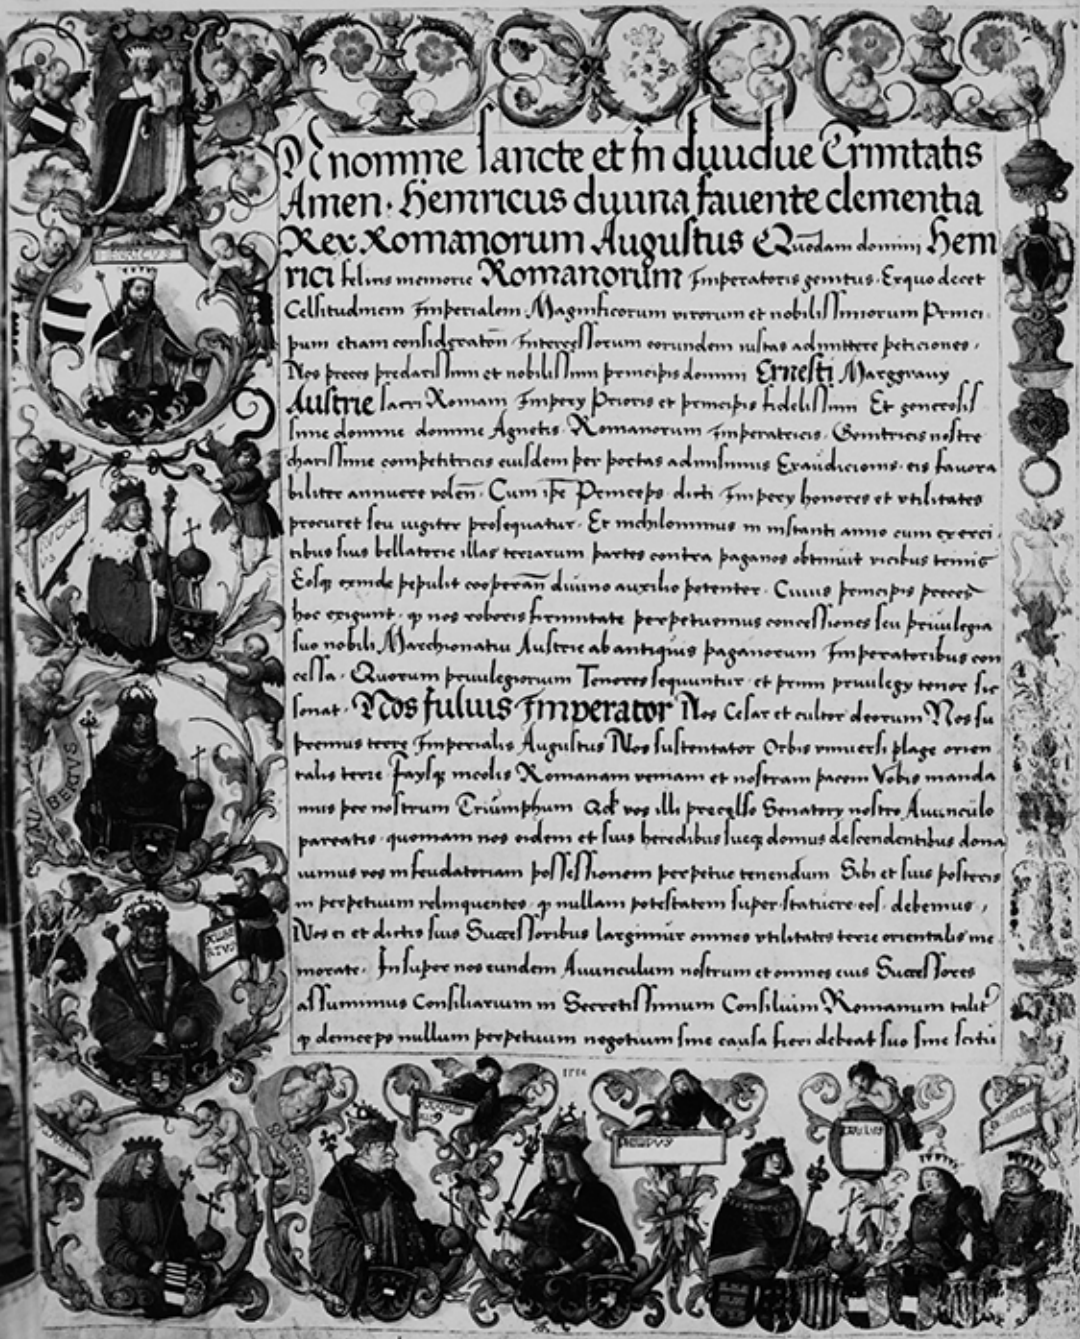 HENRICVS
IN nomine sancte et In diuidue Trinitatis
Amen. Heinricus diuina fauente clementia
Rex Romanorum Augustus Quodam domini Hein
rici felicis memorie Romanorum Imperatoris genitus. Ex quo decet
Celsitudinem Imperialem Magnificorum virorum et nobilissimorum Princi
pum etiam consideration Intercessorum eorundem iustas admittere peticiones,
Nos preces preclarissimi et nobilissimi principis domini Ernesti Marggrauy
Austrie sacri Romani Impery Prioris et principis fidelissimi Et generosis
sime domine domine Agnetis Romanorum imperatricis. Genitricis nostre
charissime competitricis eiusdem per portas admisimus Exaudicionis. eis fauora
biliter annuere volen. Cum ipse Princeps dicti Impery honores et vtilitates
procuret seu iugiter prosequatur. Et nichilominus in instanti anno cum exerci
tibus suis bellatorie illas terrarum partes contra paganos obtinuit vicibus trinis
Eosque exinde pepulit cooperan diuino auxilio potenter. Cuius principis preces
hoc exigunt. q nos roboris firmitate perpetuemus concessiones seu priuilegia
suo nobili Marchionatui Austrie ab antiquis paganorum Imperatoribus con
cessa. Quorum priuilegiorum Tenores sequuntur. et primi priuilegy tenor sic
sonat. Nos Julius Imperator Nos Cesar et cultor deorum Nos su
premus terre Imperialis Augustus Nos sustentator Orbis vniuersi plage orien
talis terre Faysque incolis Romanam veniam et nostram pacem Vobis manda
mus per nostrum Triumphum Qd vos illi precelso Senatory nostro Auunculo
pareatis. quoniam nos eidem et suis heredibus sueque domus descendentibus dona
uimus vos in feudatoriam possessionem perpetue tenendum Sibi et suis posteris
in perpetuum relinquentes. q nullam potestatem super statuere eos. debemus,
Nos ei et dictis suis Successoribus largimur omnes vtilitates terre orientalis me
morate. Insuper nos eundem Auunculum nostrum et omnes eius Successores
assumimus Consiliarium in Secretissimum Consilium Romanum talit
q deinceps nullum perpetuum negotium sine causa fieri debeat suo sine scitu
BERTVS